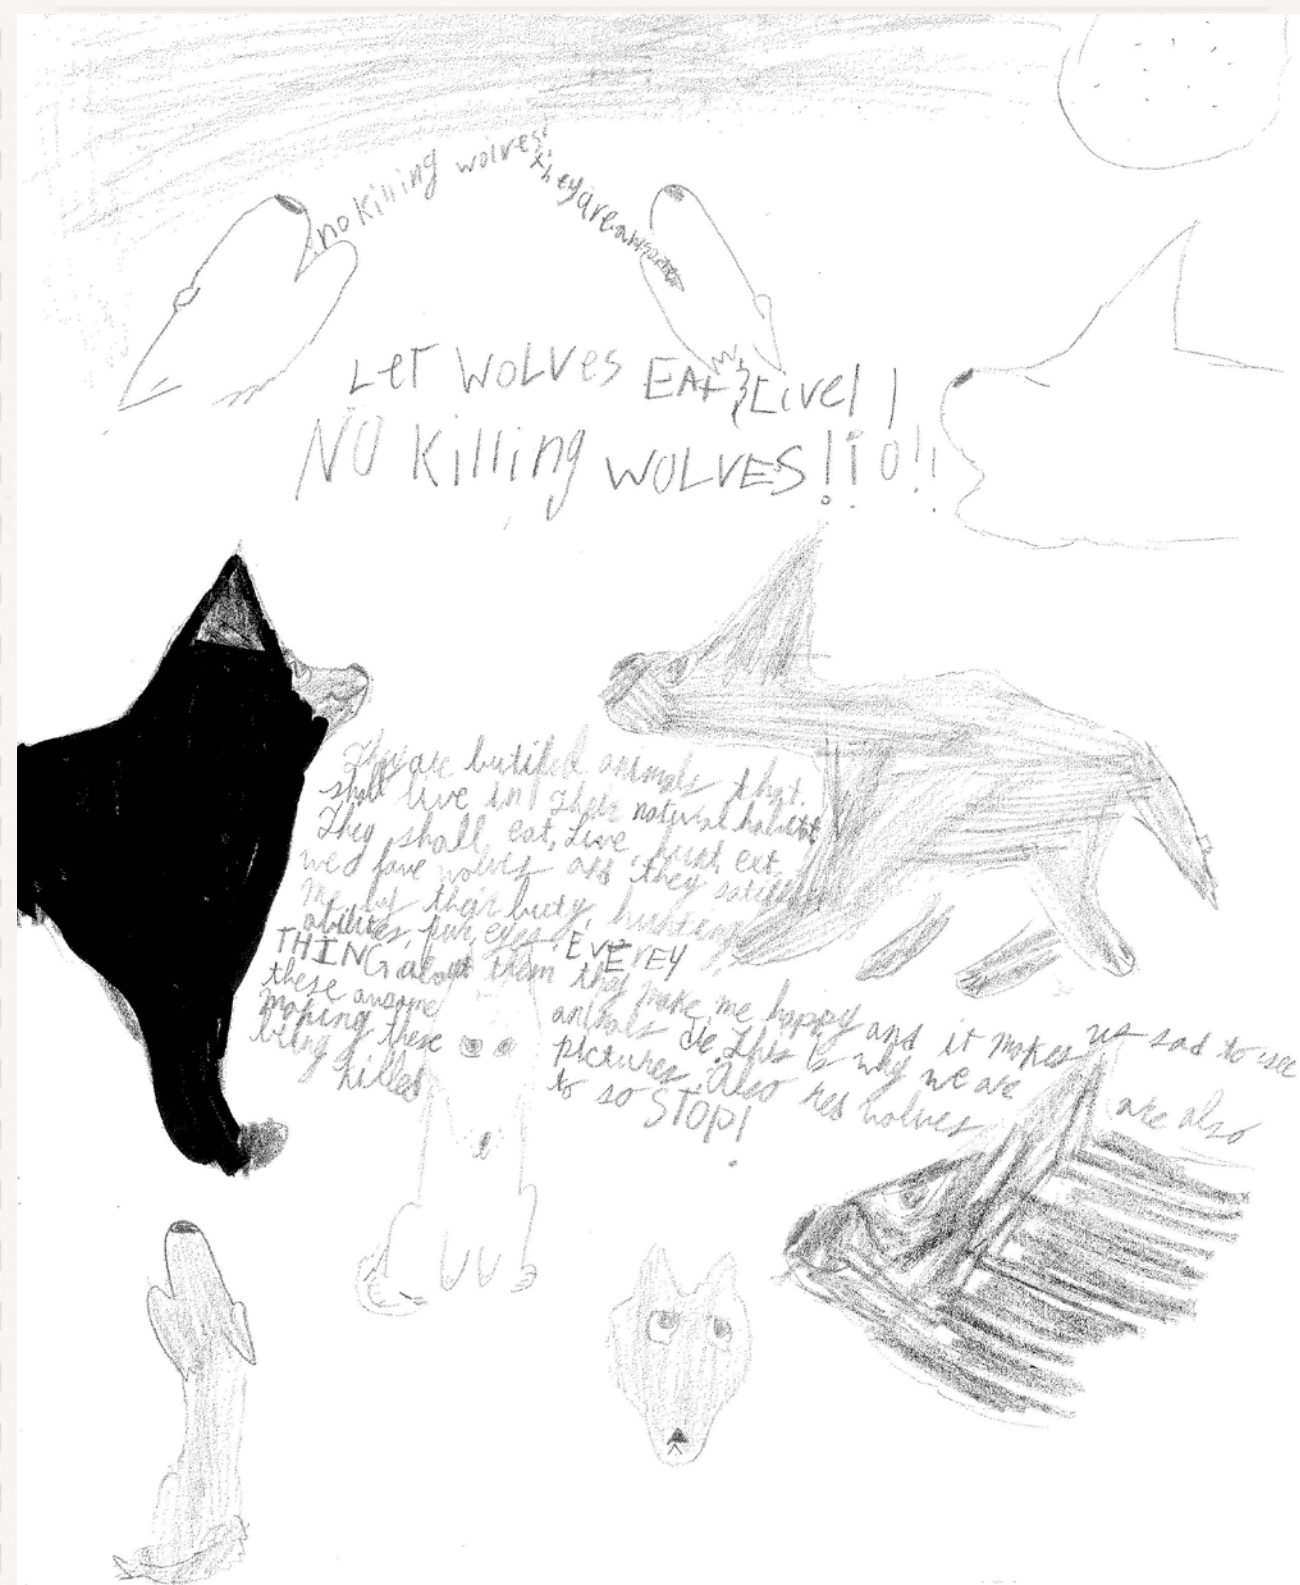 no killing wolves!
they are
LET WOLVES EAt & Live! !
NO Killing WOLVES!!i0!!
They are butifull animals that
shall live in their natural habitat
They shall eat, Live, hunt, eat.
we love wolves and they
Me by their buty, hunting
abilites, fur, eyes, EVEREY
THING about them they make me happy and it makes us sad to see
these ausome animals die. This is why we are
making these pictures. Also red wolves are also
being killed to so STOP!